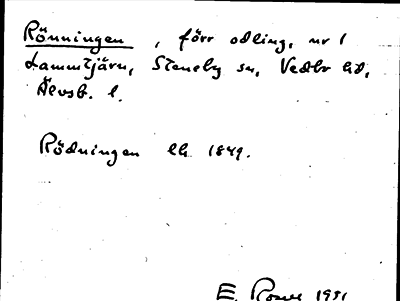 Rönningen, förr odling, nr 1
Lammtjärn, Steneby sn, Vedbo hd,
Älvsb. l.
Rödningen lh 1849.
E. 1931